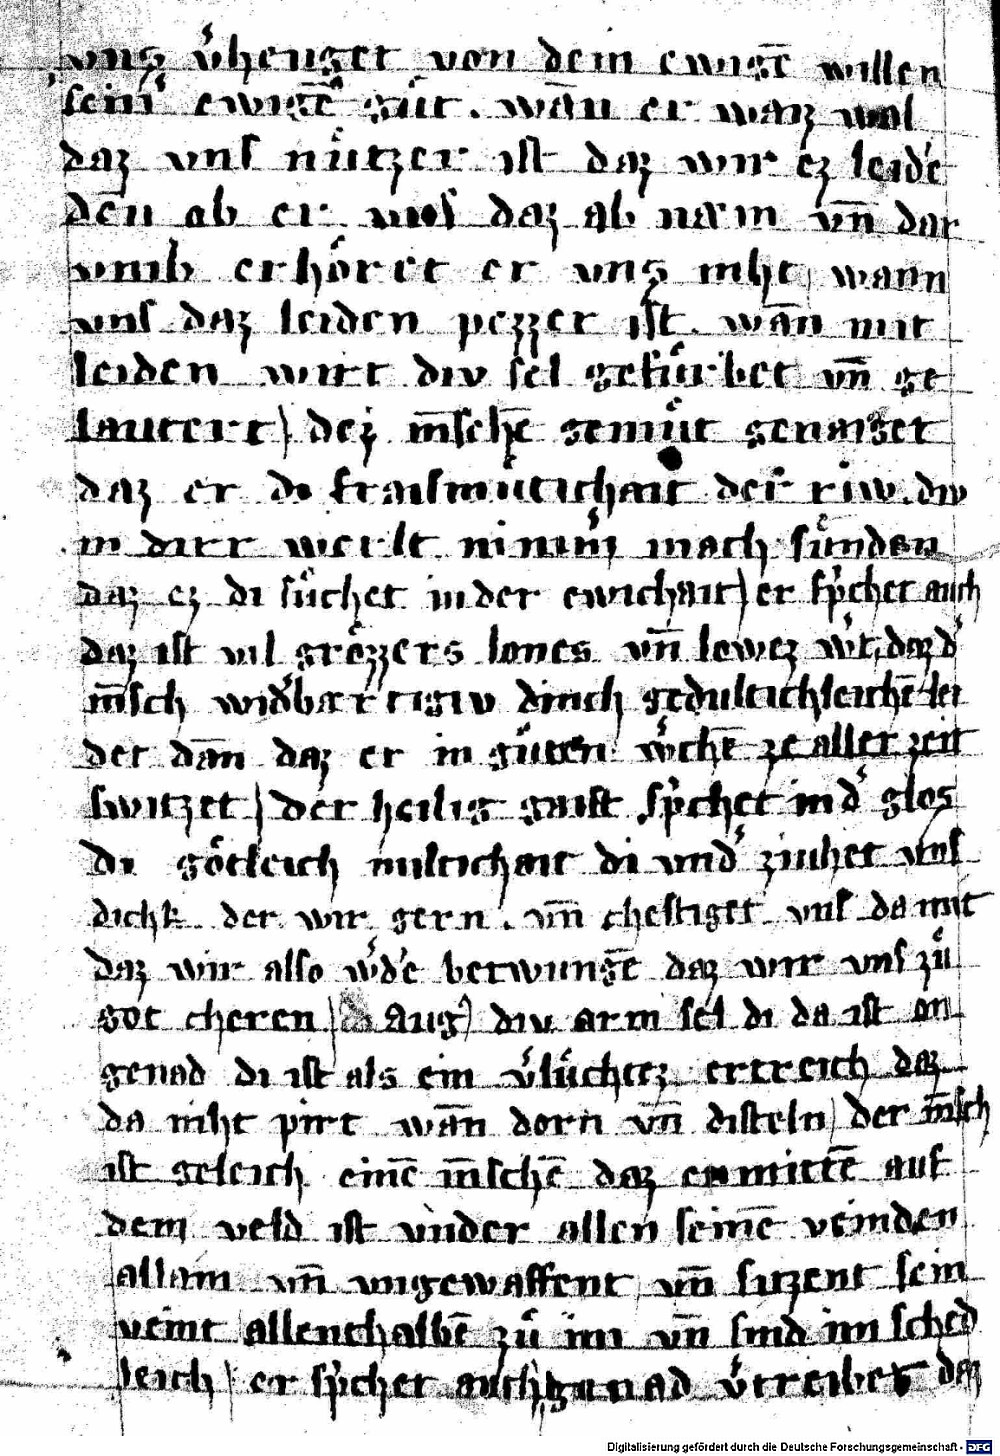 vns v̓henget von dem ewigē willen
seinͬ ewigē guͤt. wan̄ er waiz wol
daz vns nuͤtzer ist daz wir ez leidē
den̄ ob er vns daz ab næm vn̄ dar
vmb erhoͤret er vns niht wann
vns daz leiden pezzer ist. wan̄ mit
leiden wirt div sel gefuͤrbet vn̄ ge
lautert) dez m̄schē gemuͤt genaiget
daz er di fraismuͤtichait der riw. div
in dirr werlt nimm̓ mach suͤnden
daz ez di suͤchet in der ewichait) er sp̓chet auch
daz ist vil groͤzzers lones vn̄ lewez wirt, daz d̓
m̄sch wid̓bærtigiv dinch gedultichleichē lei
det dan̄ daz er in guͤten w̓chē ze aller zeit
switzet) der heilig gaist sp̓chet in d̓ glos
di goͤtleich miltichait di vnd̓ziuhet vns
dicke der wir gern. vn̄ chestiget vns da mit
daz wir also w̓dē betwungē daz wir vns zuͤ
got cheren) Aug̓) div arm sel di da ist on
genad di ist als ein v̓luͤchtez ertreich daz
da niht pirt wan̄ dorn vn̄ disteln) der m̄sch
ist geleich einē m̄schē daz enmittē auf
dem veld ist vnder allen seinē veinden
allain vn̄ vngewaffent vn̄ sitzent sein
veint allenthalbē zuͤ im vn̄ sind im sched
leich) er sp̓chet auch genad v̓treibet daz
Digitalisierung gefördert durch die Deutsche Forschungsgemeinschaft - DFG